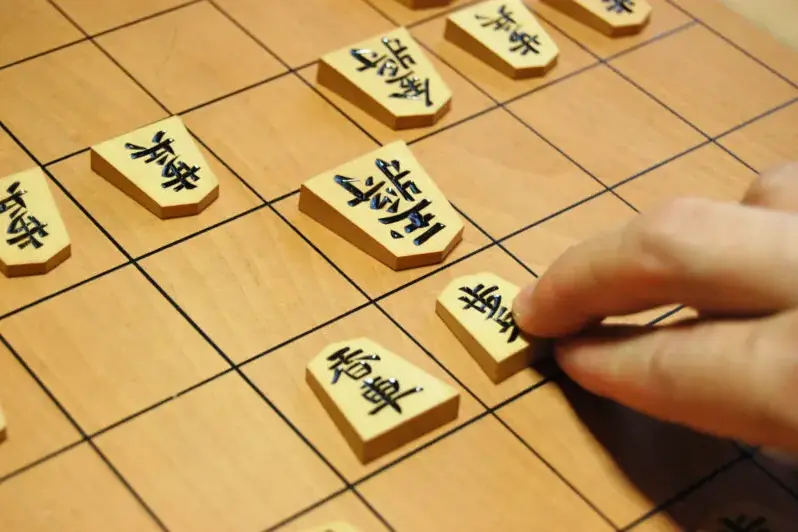 歩兵
金将
歩兵
歩兵
将
歩兵
香車